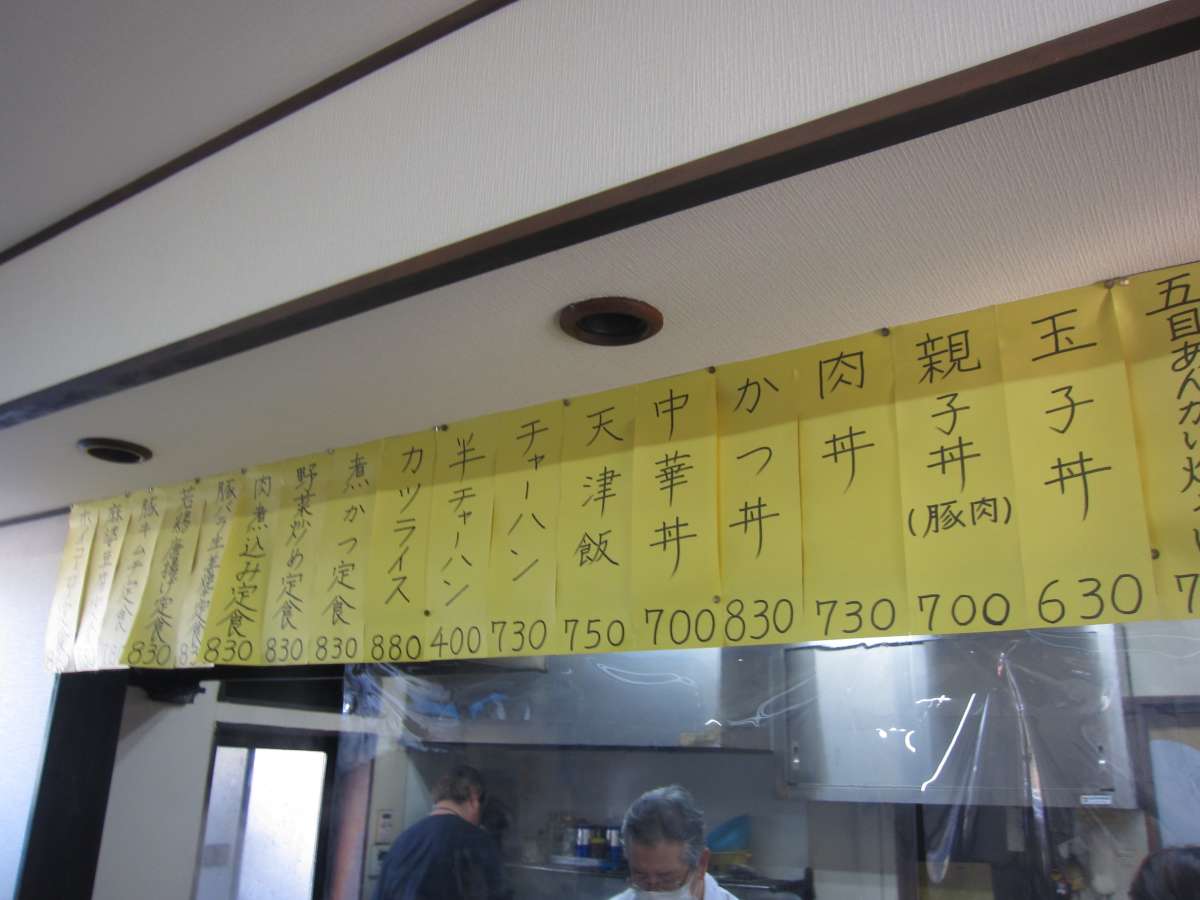 五目あんかけ焼きそば
玉子丼
630
親子丼
(豚肉)
700
肉丼
730
かつ丼
830
中華丼
700
天津飯
750
チャーハン
730
半チャーハン
400
カツライス
880
煮かつ定食
830
野菜炒め定食
830
肉煮込み定食
830
豚バラ生姜焼定食
若鶏唐揚げ定食
830
豚キムチ定食